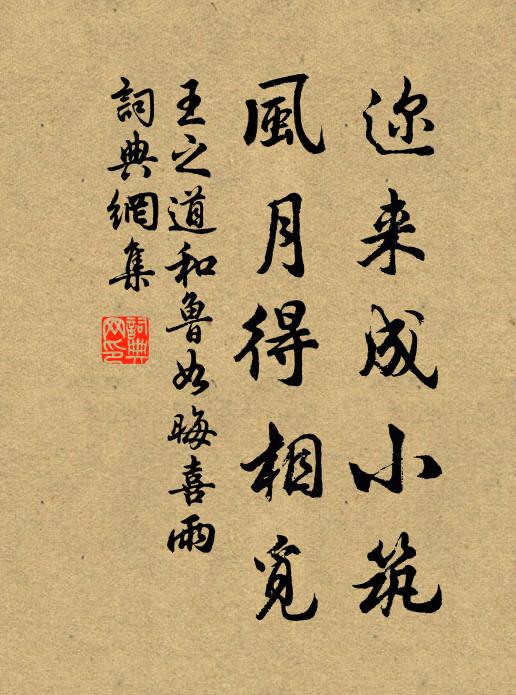 迩来成小筑
風月得相覓
王之道和魯如晦喜雨
詞典網集
詞典
网印